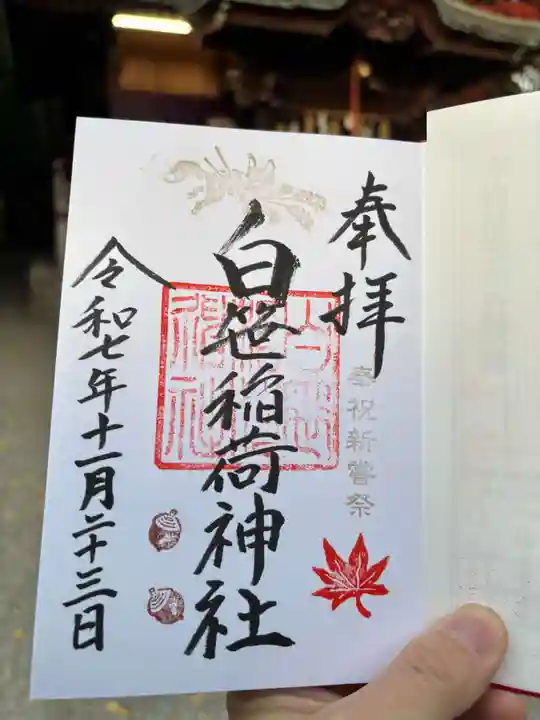 奉拝
奉祝新嘗祭
白笹稲荷神社
令和七年十一月二十三日